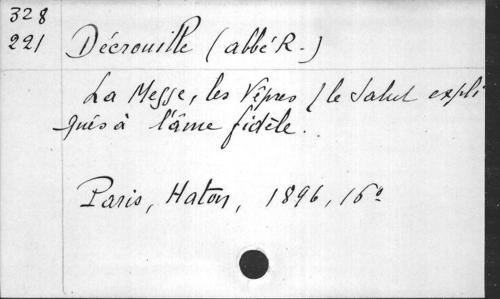 328
221
Décrouille (abbé R.)
La Messe, les Vêpres / le Salut expli
qués à l'âme fidèle.
Paris, Haton, 1896, 16°